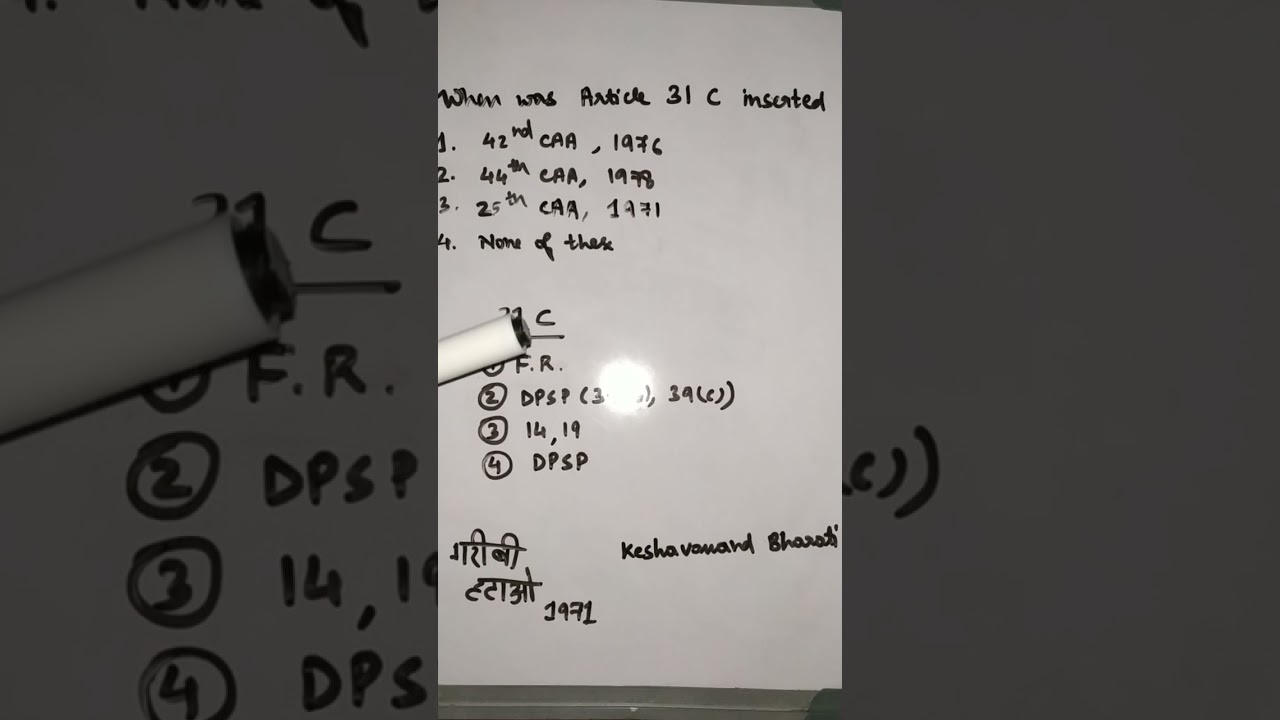 When was Article 31 C inserted
1. 42nd CAA, 1976
2. 44th CAA, 1978
3. 25th CAA, 1971
4. None of these
C
F.R.
② DPSP (3 ), 39(c))
③ 14, 19
④ DPSP
गरीबी
हटाओ
1971
Keshavanand Bharati